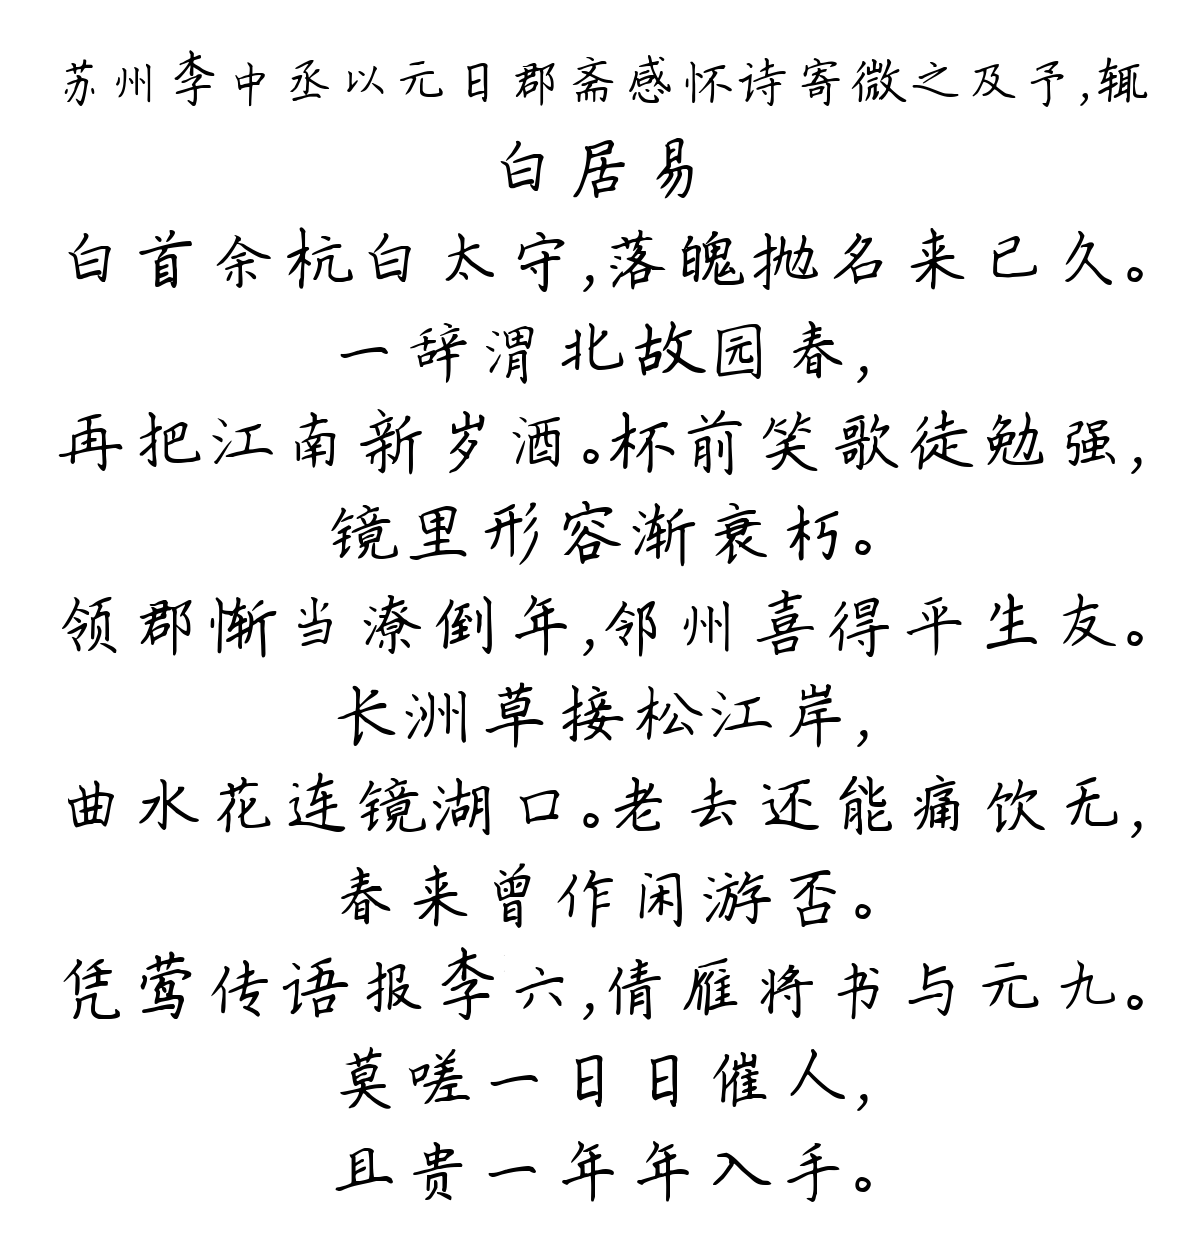 苏州李中丞以元日郡斋感怀诗寄微之及予,辄
白居易
白首余杭白太守,落魄抛名来已久。
一辞渭北故园春,
再把江南新岁酒。杯前笑歌徒勉强,
镜里形容渐衰朽。
领郡惭当潦倒年,邻州喜得平生友。
长洲草接松江岸,
曲水花连镜湖口。老去还能痛饮无,
春来曾作闲游否。
凭莺传语报李六,倩雁将书与元九。
莫嗟一日日催人,
且贵一年年入手。